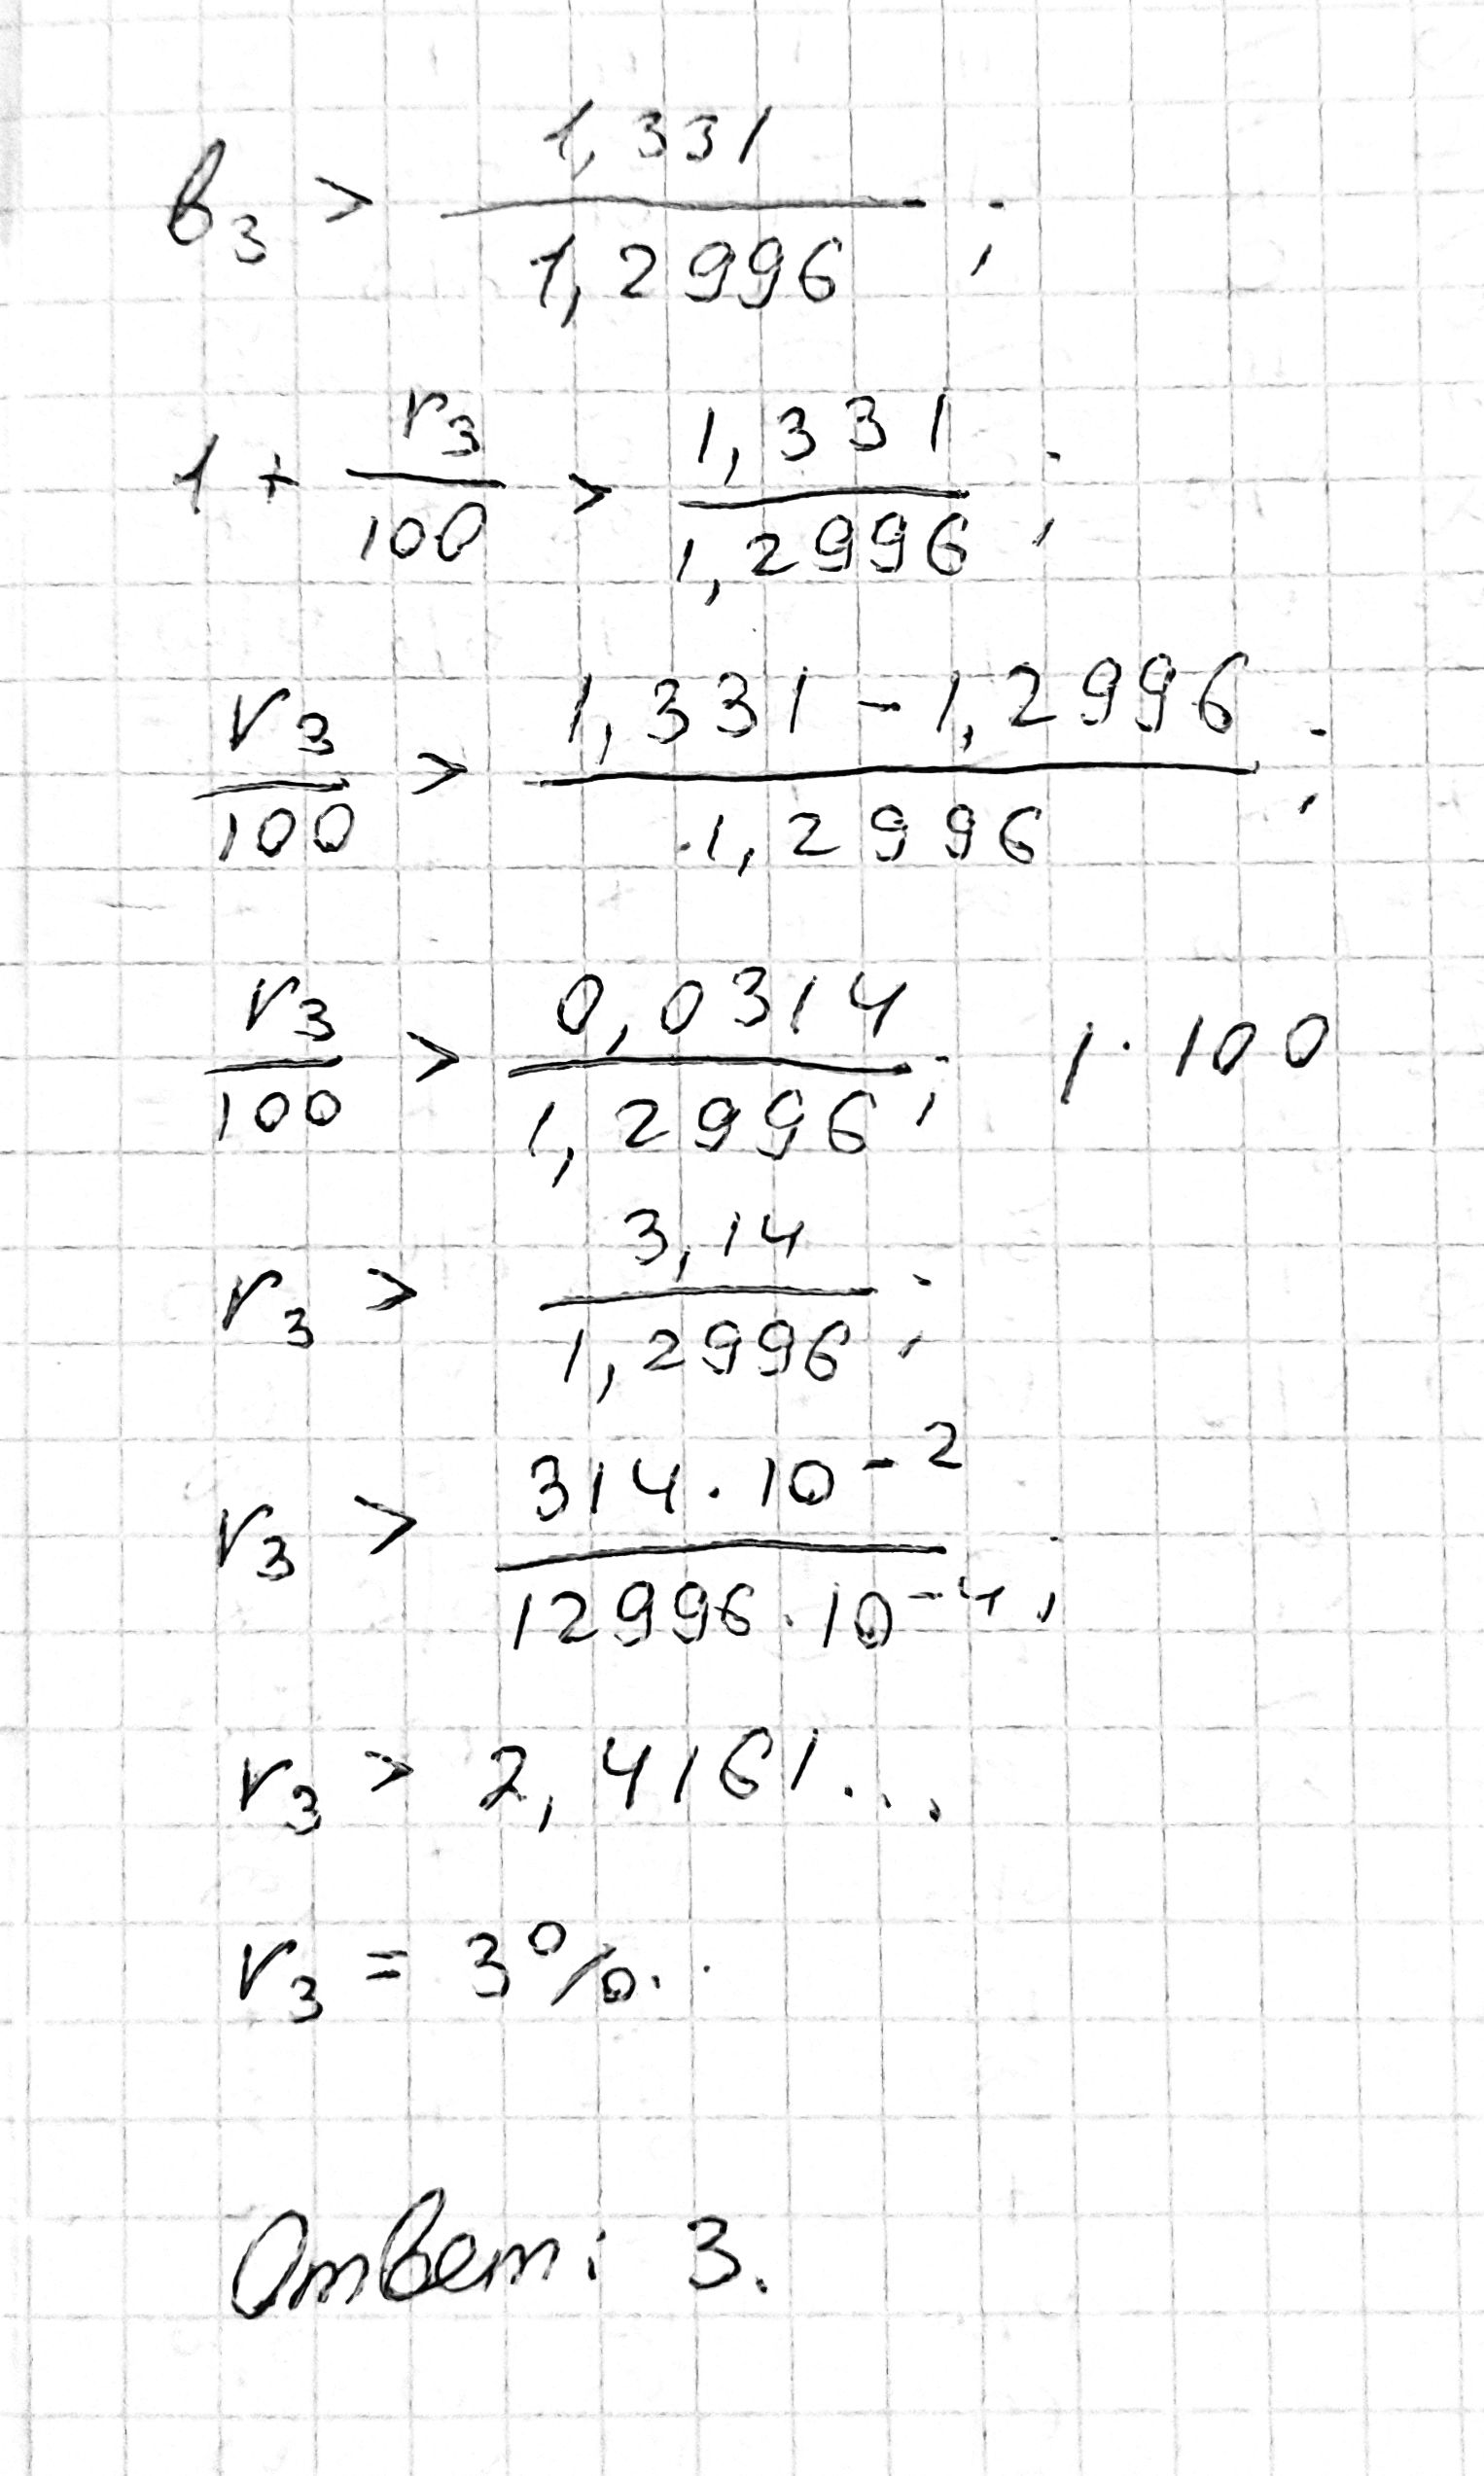 b₃ > 1,331 / 1,2996 ;
1 + r₃/100 > 1,331 / 1,2996 ;
r₃/100 > (1,331 - 1,2996) / 1,2996 ;
r₃/100 > 0,0314 / 1,2996 ; | · 100
r₃ > 3,14 / 1,2996 ;
r₃ > 314 · 10⁻² / 12996 · 10⁻⁴ ;
r₃ > 2,4161...
r₃ = 3%.
Ответ: 3.